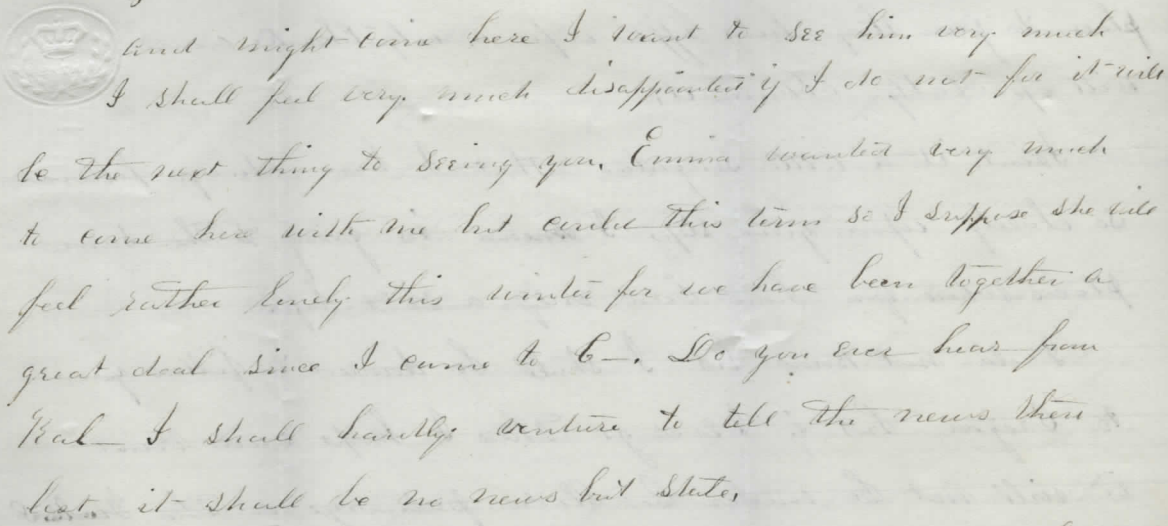 and might come here I want to see him very much
I shall feel very much disappointed if I do not for it will
be the next thing to seeing you. Emma wanted very much
to come here with me but could this term so I suppose she will
feel rather lonely this winter for we have been together a
great deal since I came to C—. Do you ever hear from
Kal— I shall hardly venture to tell the news then
lest it shall be no news but stale.